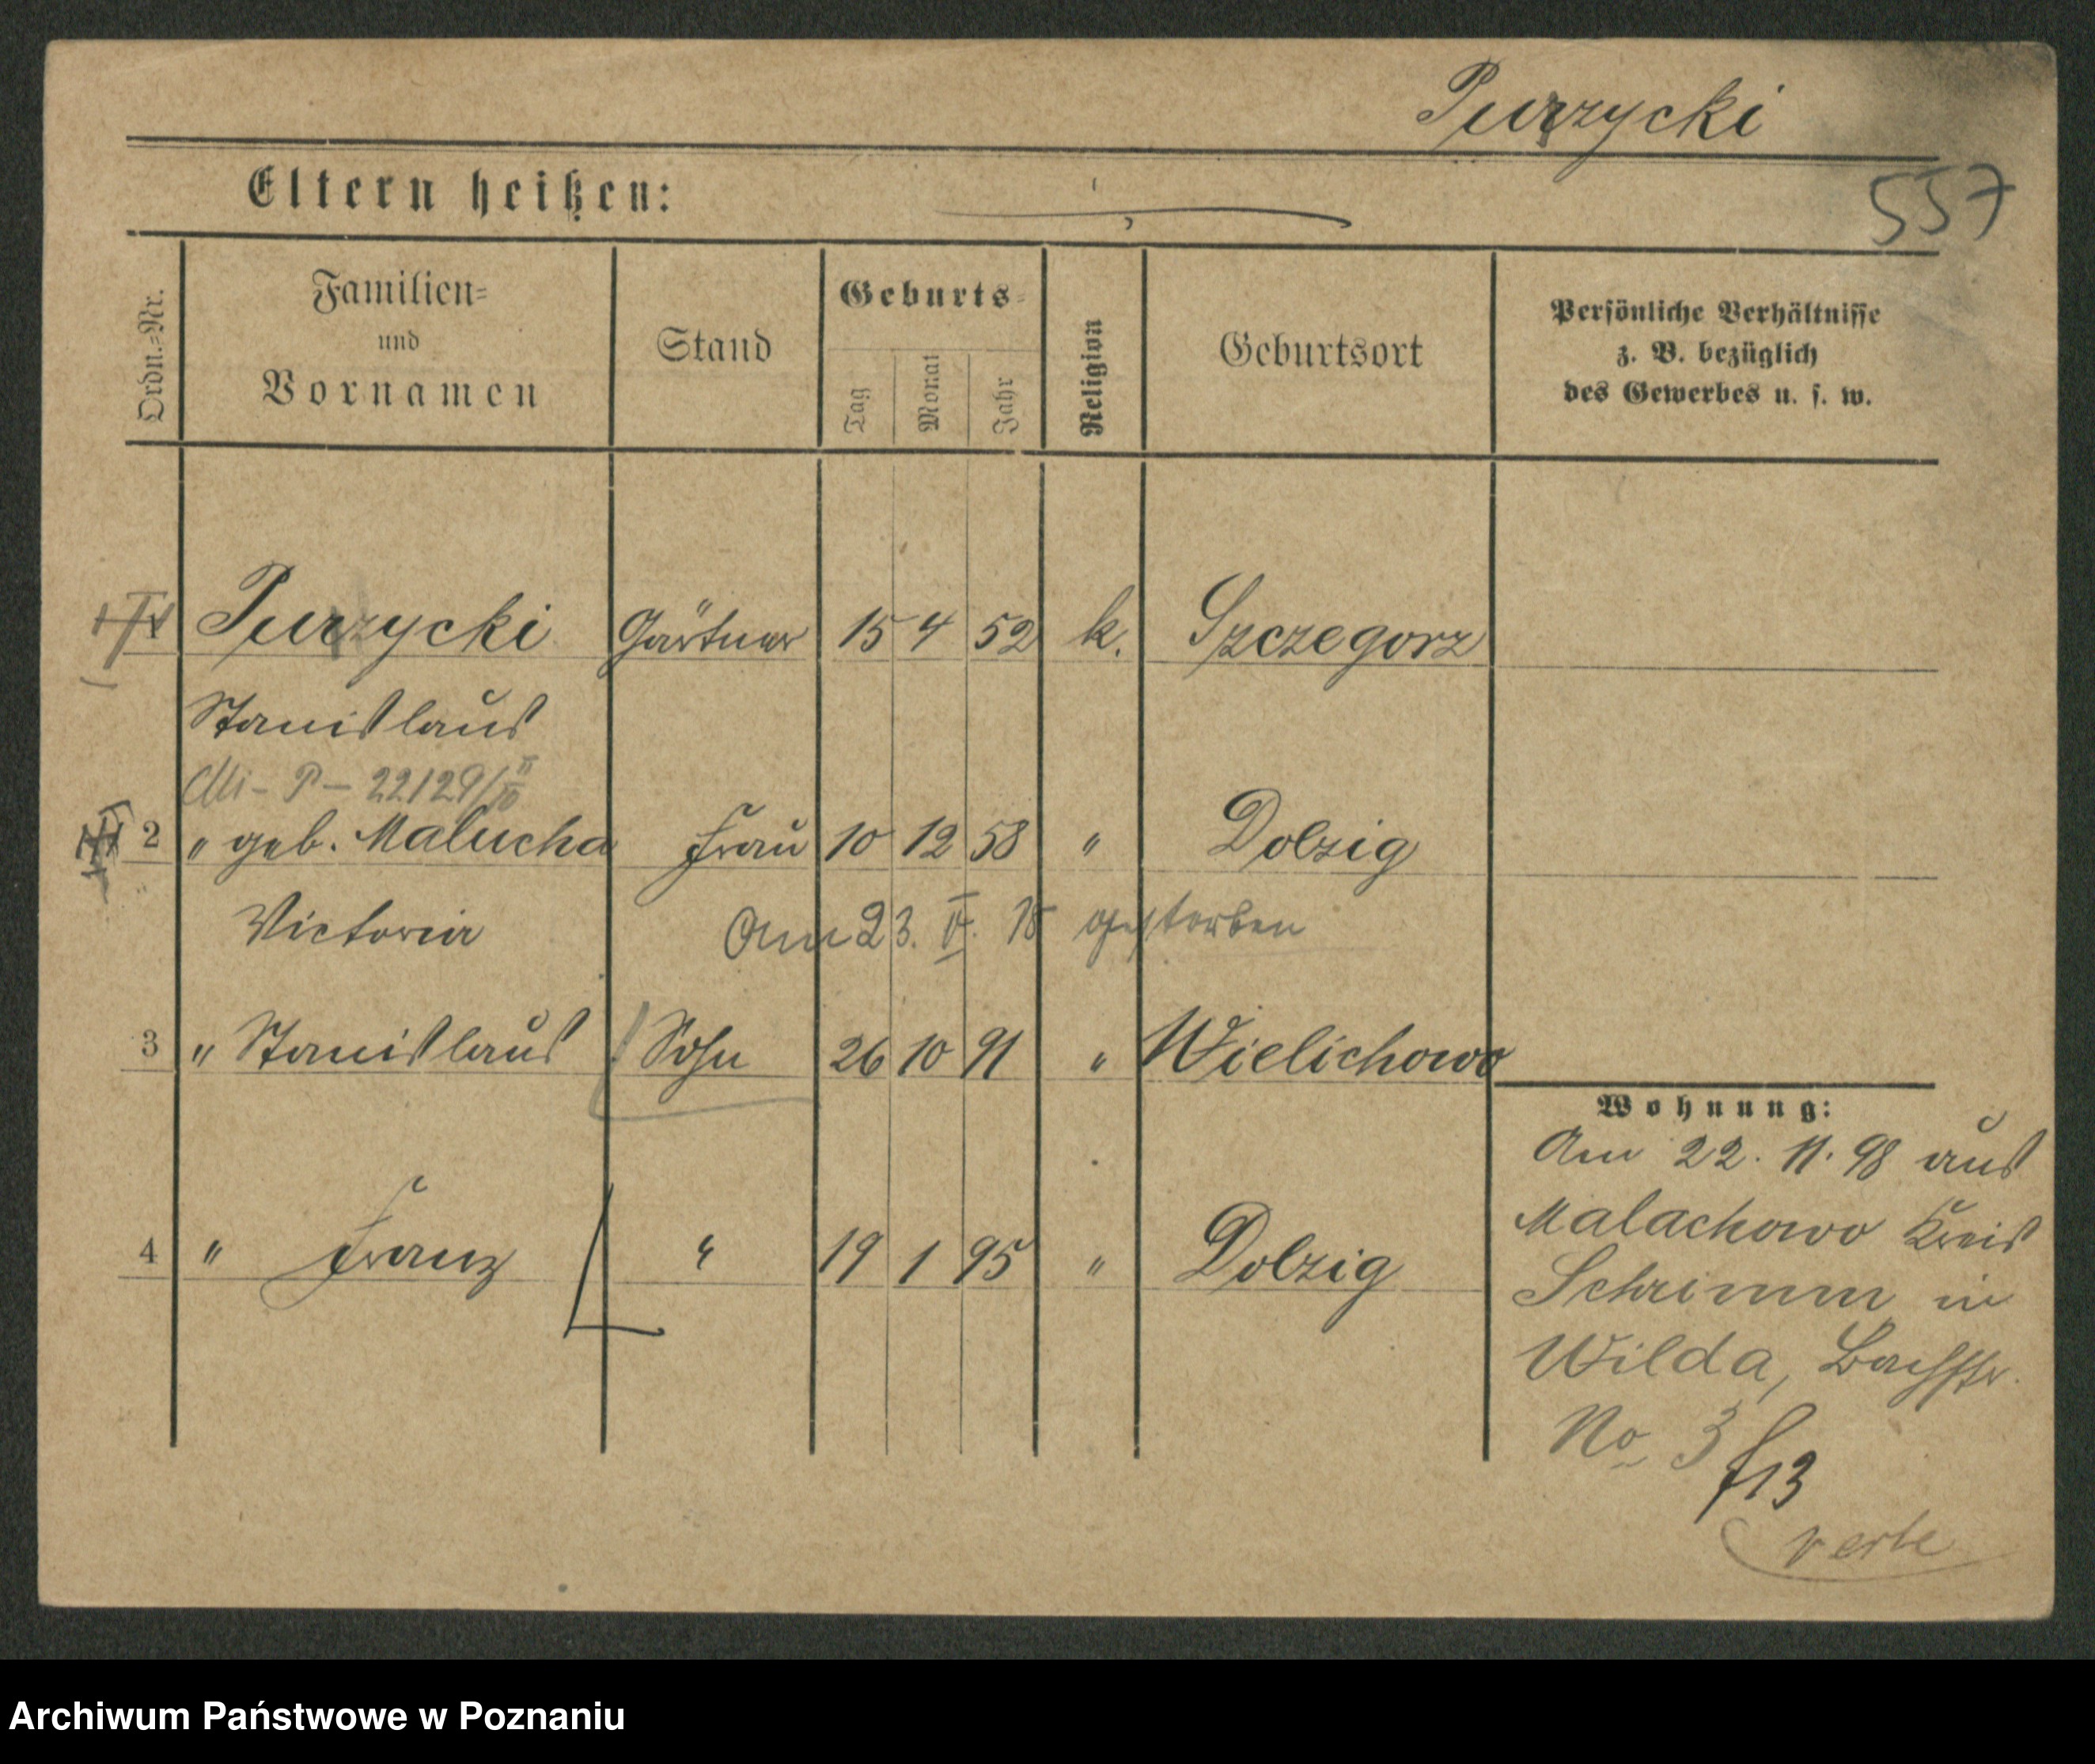 Purzycki
557
Eltern heißen:
Ordn.-Nr.
Familien-
und
Vornamen
Stand
Geburts-
Tag
Monat
Jahr
Religion
Geburtsort
Persönliche Verhältnisse
z. B. bezüglich
des Gewerbes u. s. w.
Purzycki Gärtner 15 4 52 k. Szczegorz
Stanislaus
2 " geb. Malucha Frau 10 12 58 " Dolzig
Victoria Am 23. V. 18 gestorben
3 " Stanislaus Sohn 26 10 91 " Wielichowo
4 " Franz " 19 1 95 " Dolzig
Wohnung:
Am 22. 11. 98 aus
Malachowo Kreis
Schrimm in
Wilda, Bachstr.
No 3
Archiwum Państwowe w Poznaniu